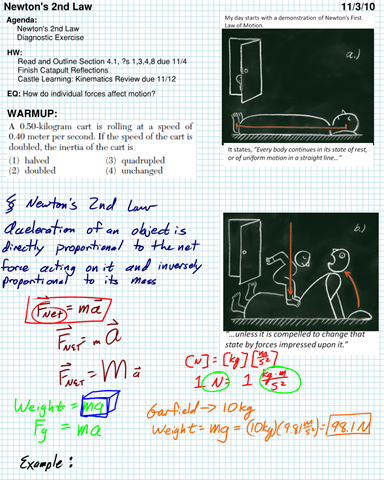 Newton's 2nd Law 11/3/10
Agenda:
Newton's 2nd Law
Diagnostic Exercise
HW:
Read and Outline Section 4.1, ?s 1,3,4,8 due 11/4
Finish Catapult Reflections
Castle Learning: Kinematics Review due 11/12
EQ: How do individual forces affect motion?
My day starts with a demonstration of Newton's First
Law of Motion.
a.)
It states, "Every body continues in its state of rest,
or of uniform motion in a straight line..."
WARMUP:
A 0.50-kilogram cart is rolling at a speed of
0.40 meter per second. If the speed of the cart is
doubled, the inertia of the cart is
(1) halved (3) quadrupled
(2) doubled (4) unchanged
§ Newton's 2nd Law
Acceleration of an object is
directly proportional to the net
force acting on it and inversely
proportional to its mass
b.)
"...unless it is compelled to change that
state by forces impressed upon it."
F_NET = ma
F_NET = mA
F_NET = Ma
[N] = [kg][m/s²]
1 N = 1 kg·m/s²
Weight = mg
Fg = ma
Garfield → 10kg
Weight = mg = (10kg)(9.81 m/s²) = 98.1 N
Example: